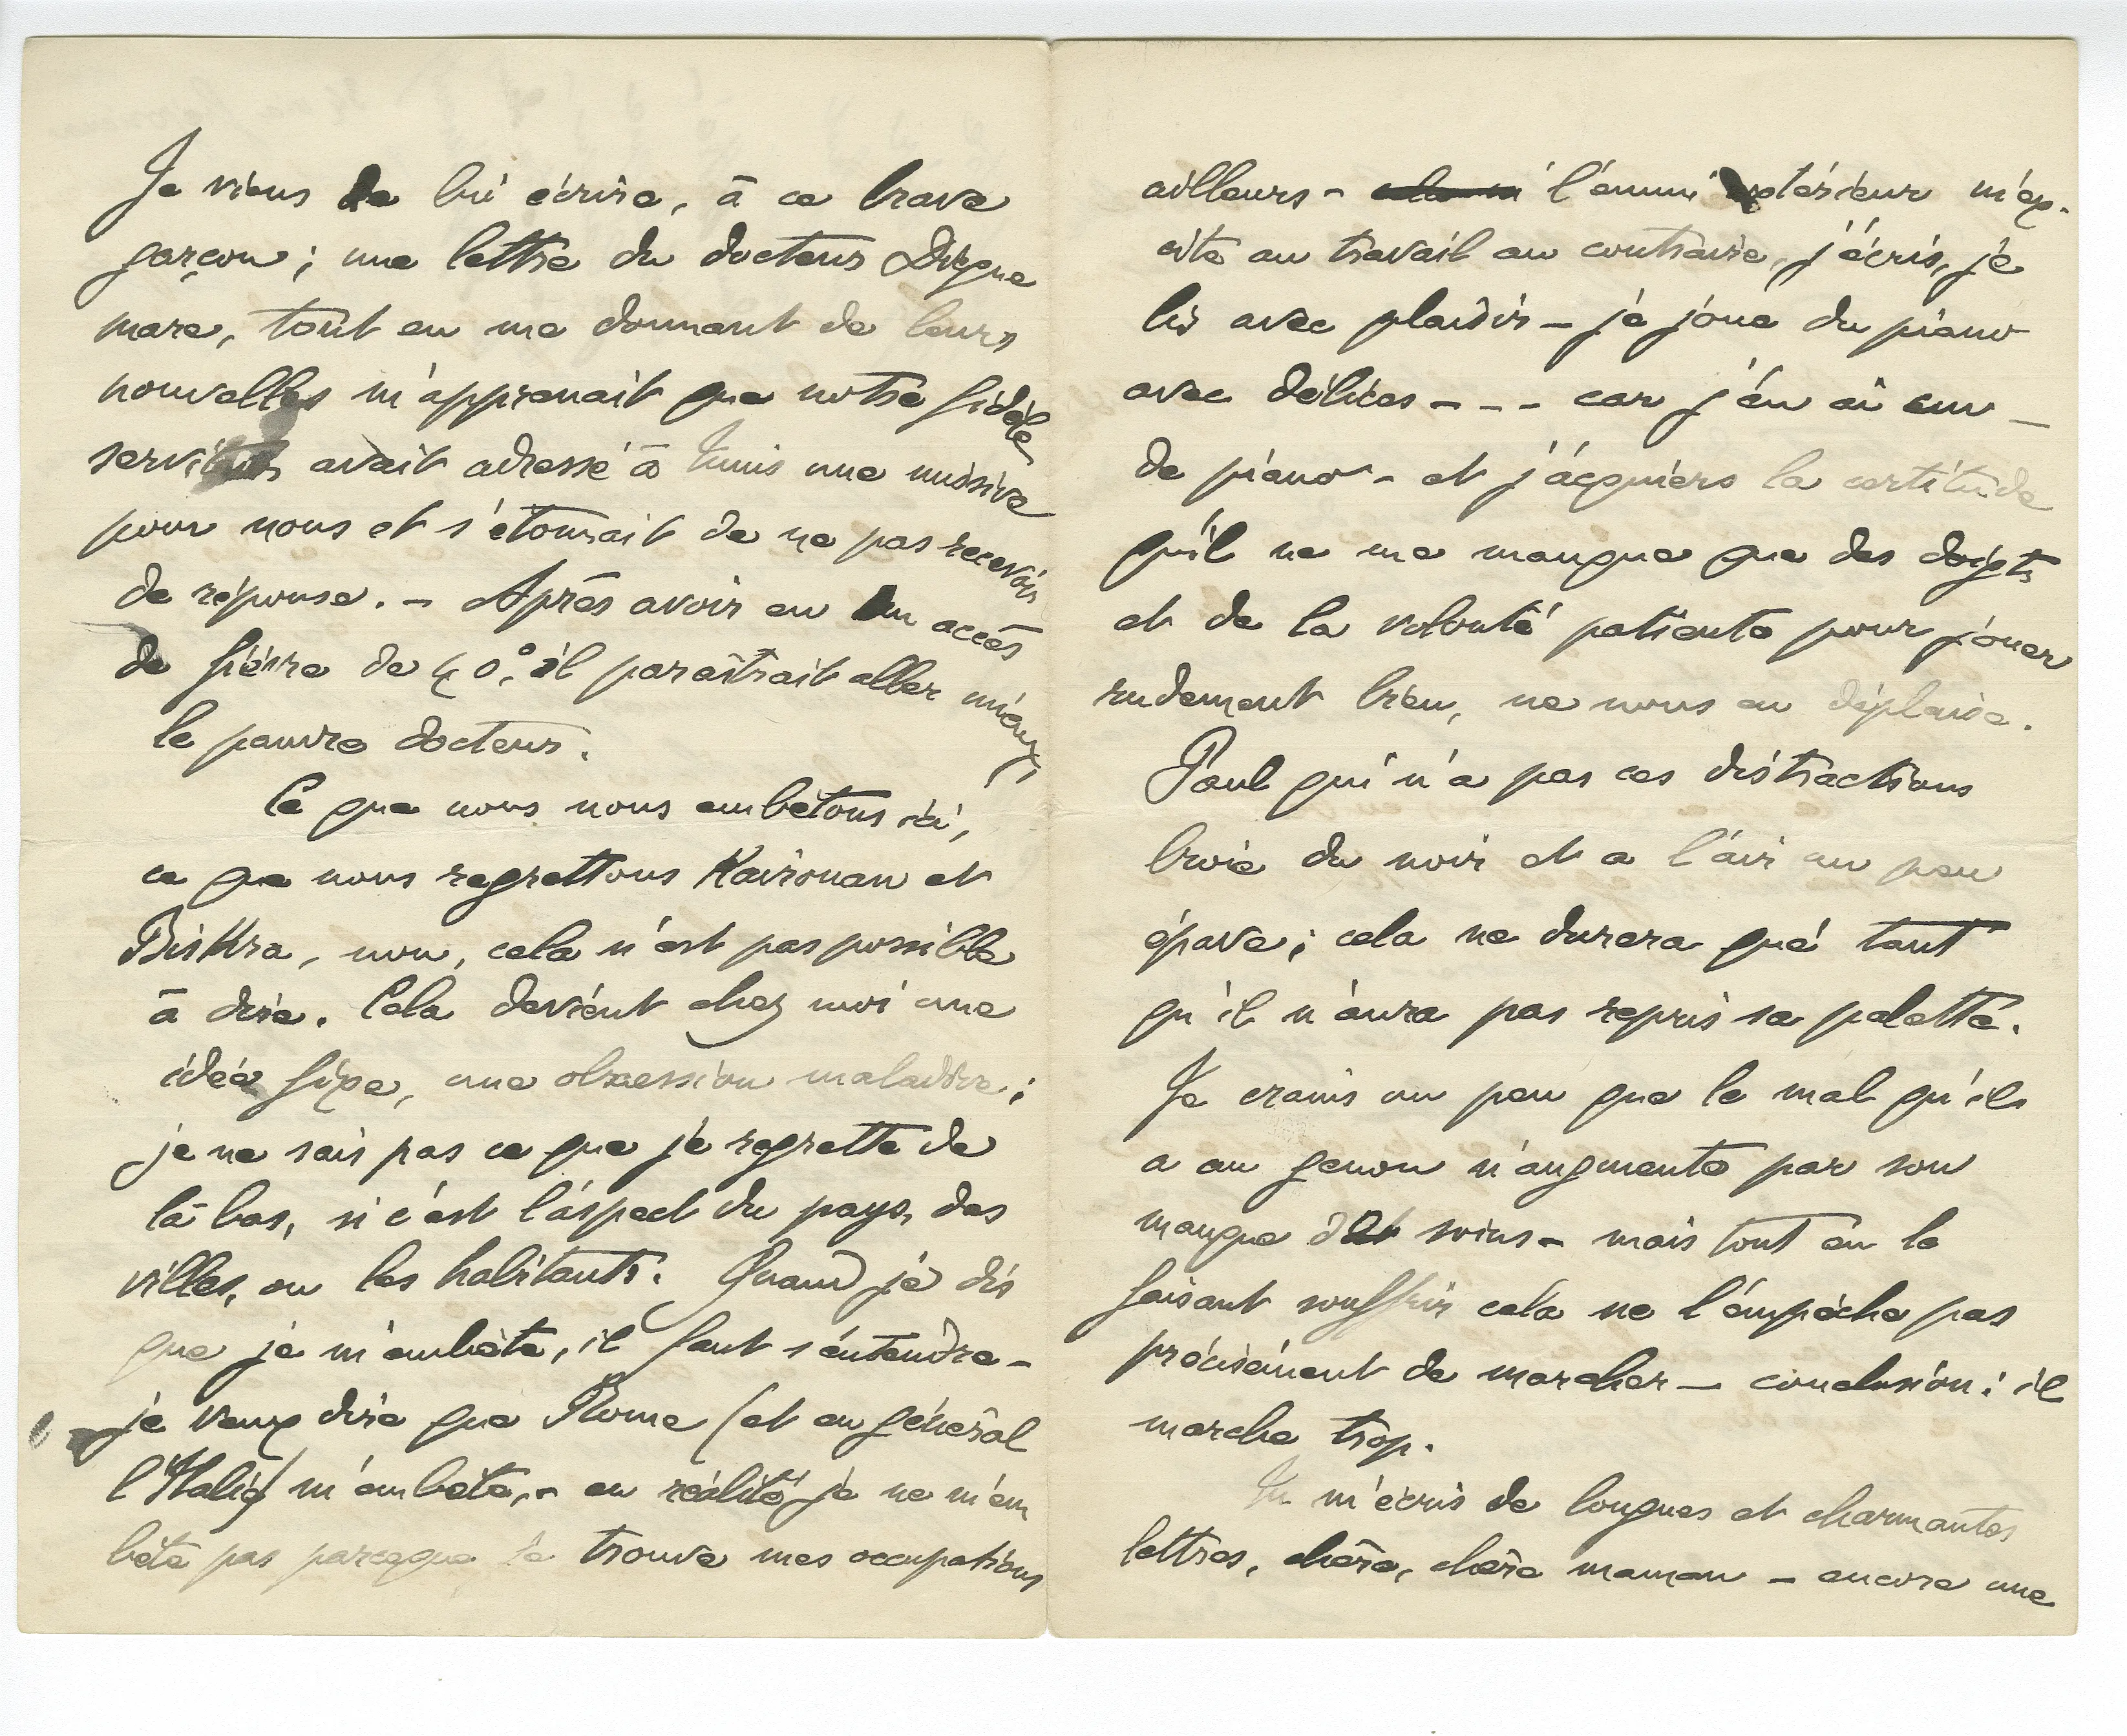 Je viens de lui écrire, à ce brave
garçon ; une lettre du docteur Digue
mare, tout en me donnant de leurs
nouvelles m'apprenait que notre fidèle
serviteur avait adressé à Tunis une missive
pour nous et s'étonnait de ne pas recevoir
de réponse. – Après avoir eu un accès
de fièvre de 40°, il paraîtrait aller mieux,
le pauvre docteur.
Ce que nous nous embêtons ici,
ce que nous regrettons Kairouan et
Biskra, non, cela n'est pas possible
à dire. Cela devient chez moi une
idée fixe, une obsession maladive ;
je ne sais pas ce que je regrette de
là bas, si c'est l'aspect du pays, des
villes, ou les habitants. Quand je dis
que je m'embête, il faut s'entendre –
je veux dire que Rome (et en général
l'Italie) m'embête, – en réalité je ne m'em
bête pas parceque je trouve mes occupations
ailleurs – l'ennui extérieur m'ex-
cite au travail au contraire, j'écris, je
lis avec plaisir – je joue du piano
avec délices - - - car j'en ai un –
de piano – et j'acquiers la certitude
qu'il ne me manque que des doigts
et de la volonté patiente pour jouer
rudement bien, ne vous en déplaise.
Paul qui n'a pas ces distractions
broie du noir et a l'air un peu
épave ; cela ne durera que tant
qu'il n'aura pas repris sa palette.
Je crains un peu que le mal qu'il
a au genou n'augmente par son
manque de soins – mais tout en le
faisant souffrir cela ne l'empêche pas
précisément de marcher – conclusion : il
marche trop.
Tu m'écris de longues et charmantes
lettres, chère, chère maman – encore une